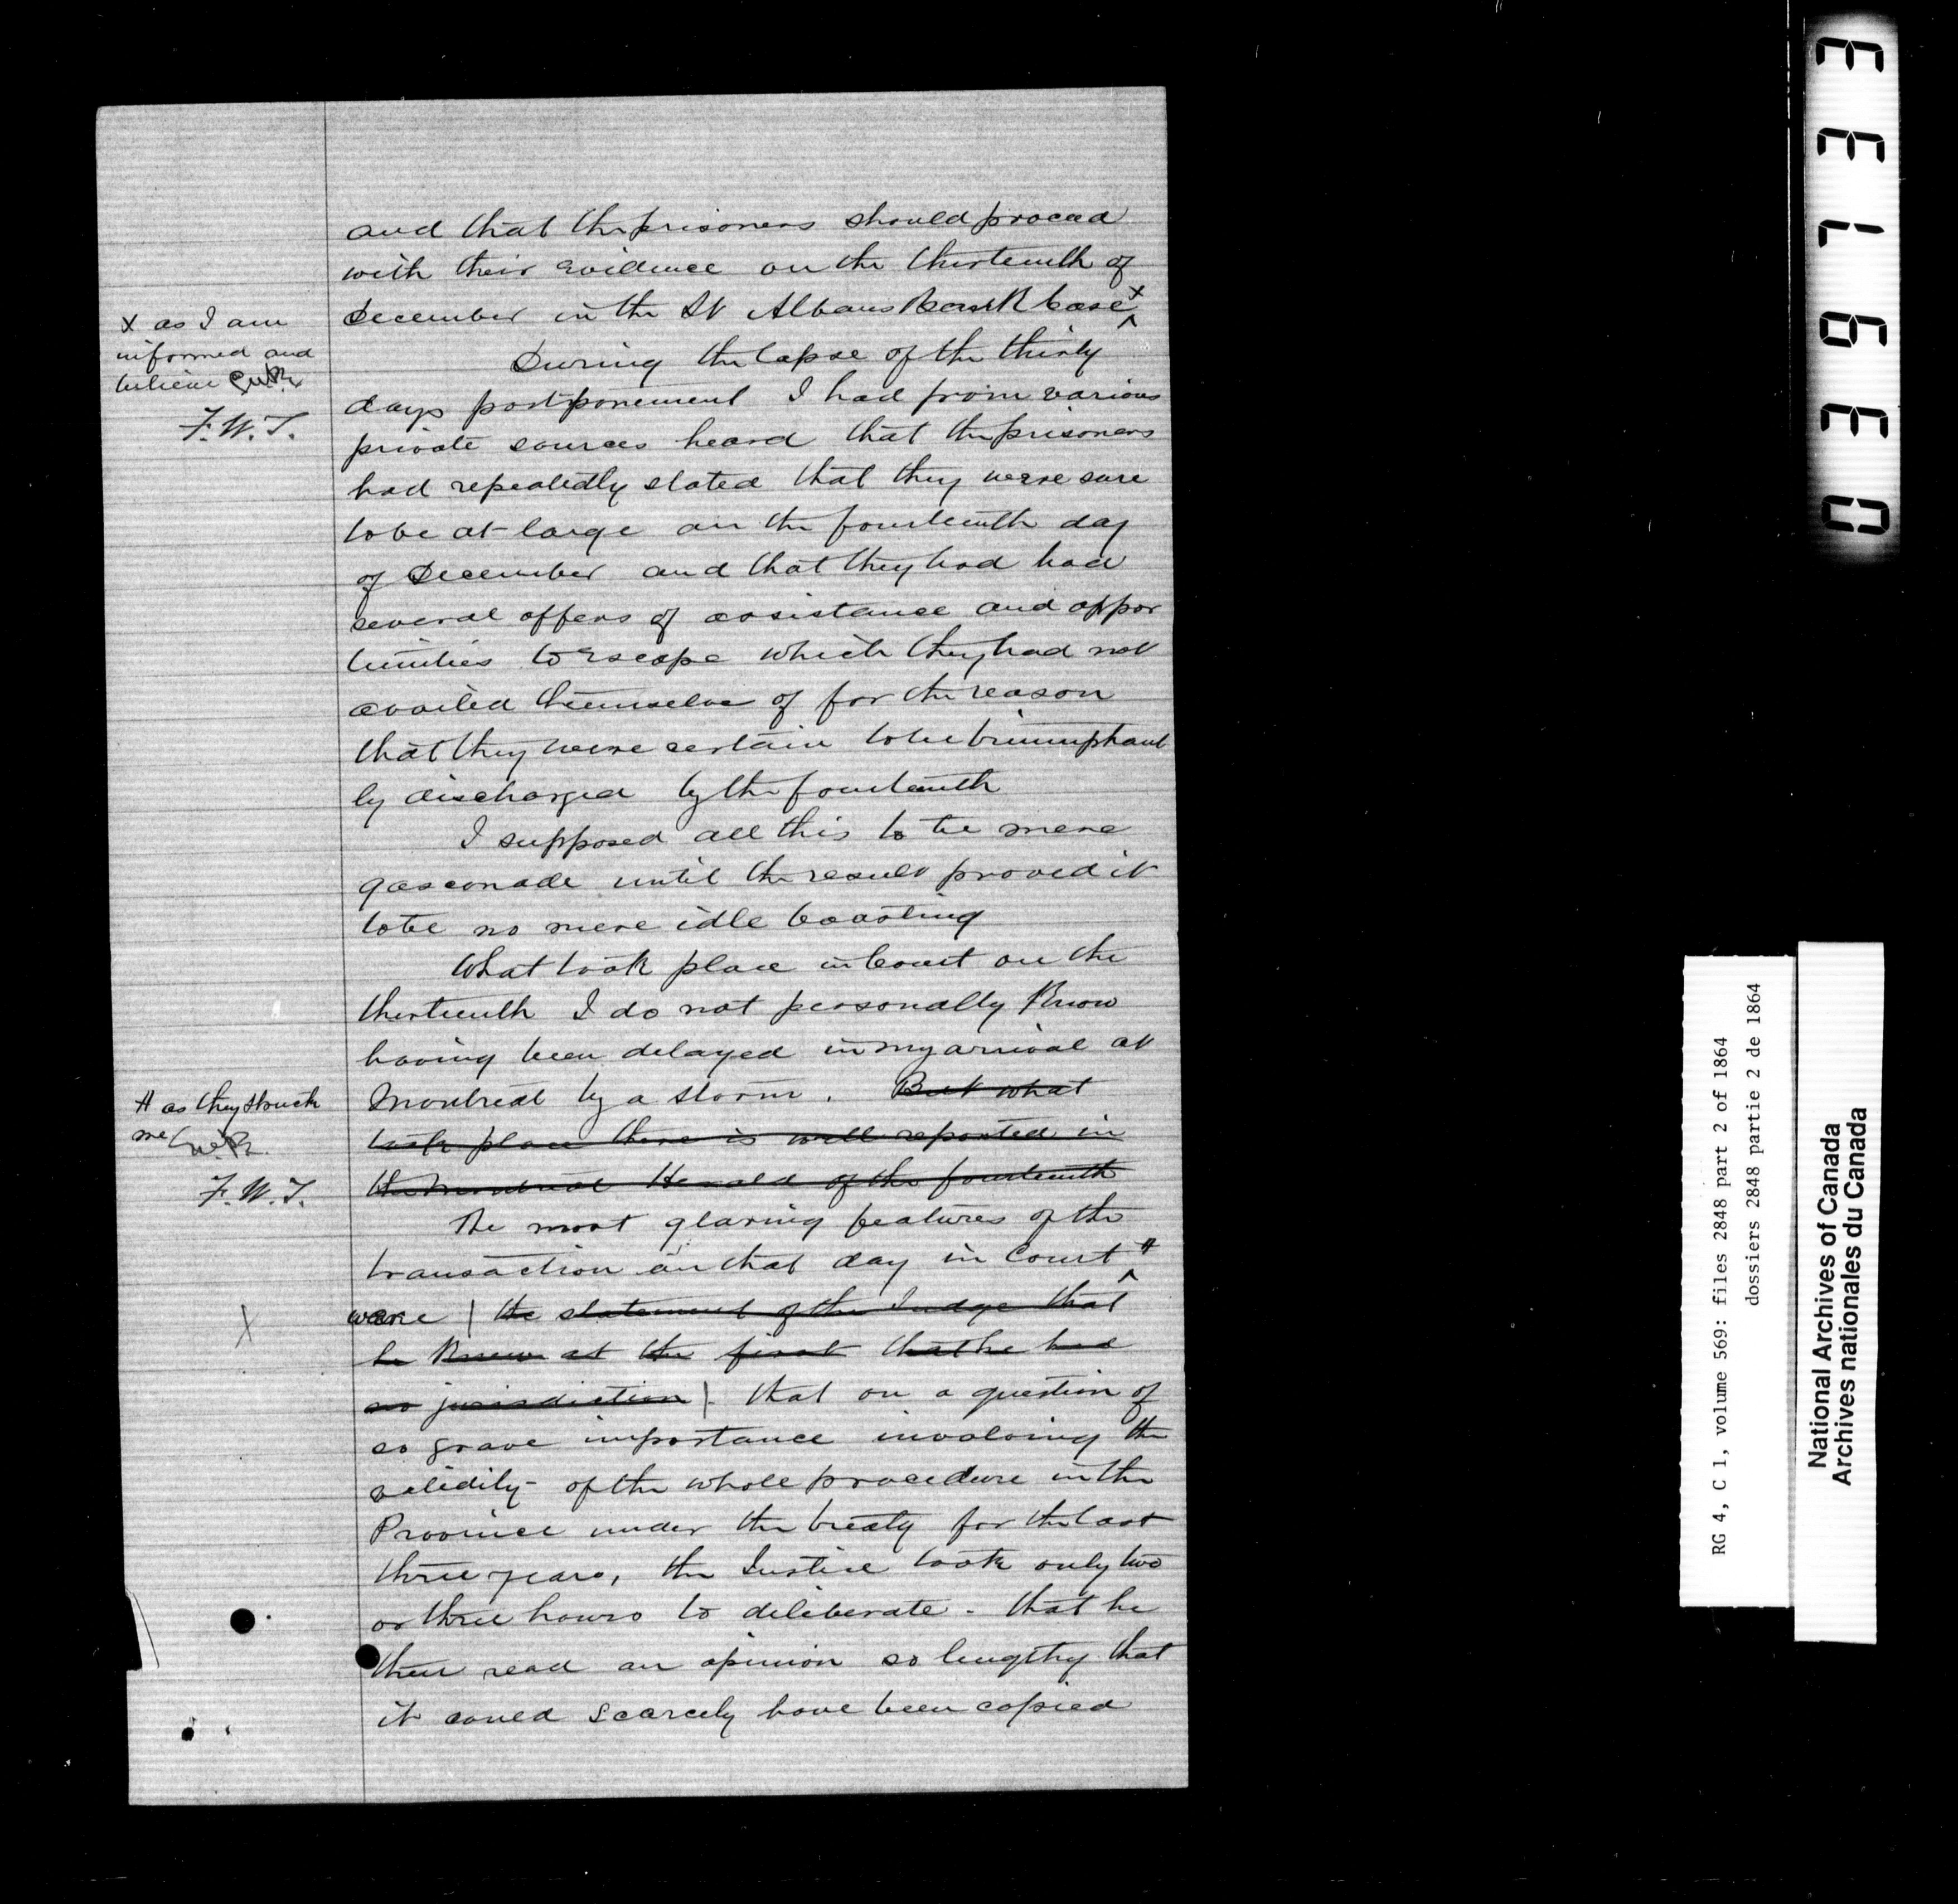 and that the prisoners should proceed
with their evidence on the thirteenth of
December in the St Albans Bank Case x
x as I am
informed and
believe
F.W.T.
During the lapse of the thirty
days postponement I had from various
private sources heard that the prisoners
had repeatedly stated that they were sure
to be at large on the fourteenth day
of December and that they had had
several offers of assistance and oppor
tunities to escape which they had not
availed themselve of for the reason
that they were certain to be triumphant
ly discharged by the fourteenth
I supposed all this to be mere
gasconade until the result proved it
to be no mere idle boasting
What took place in Court on the
thirteenth I do not personally know
having been delayed in my arrival at
Montreal by a storm. But what
took place there is well reported in
the Montreal Herald of the fourteenth
# as they struck
me
F.W.T.
The most glaring features of the
transaction on that day in Court #
X
were | the statement of the Judge that
he knew at the first that he had
no jurisdiction | that on a question of
so grave importance involving the
validity of the whole procedure in the
Province under the treaty for the last
three years, the Justice took only two
or three hours to deliberate - that he
then read an opinion so lengthy that
it could scarcely have been copied
RG 4, C 1, volume 569: files 2848 part 2 of 1864
dossiers 2848 partie 2 de 1864
National Archives of Canada
Archives nationales du Canada